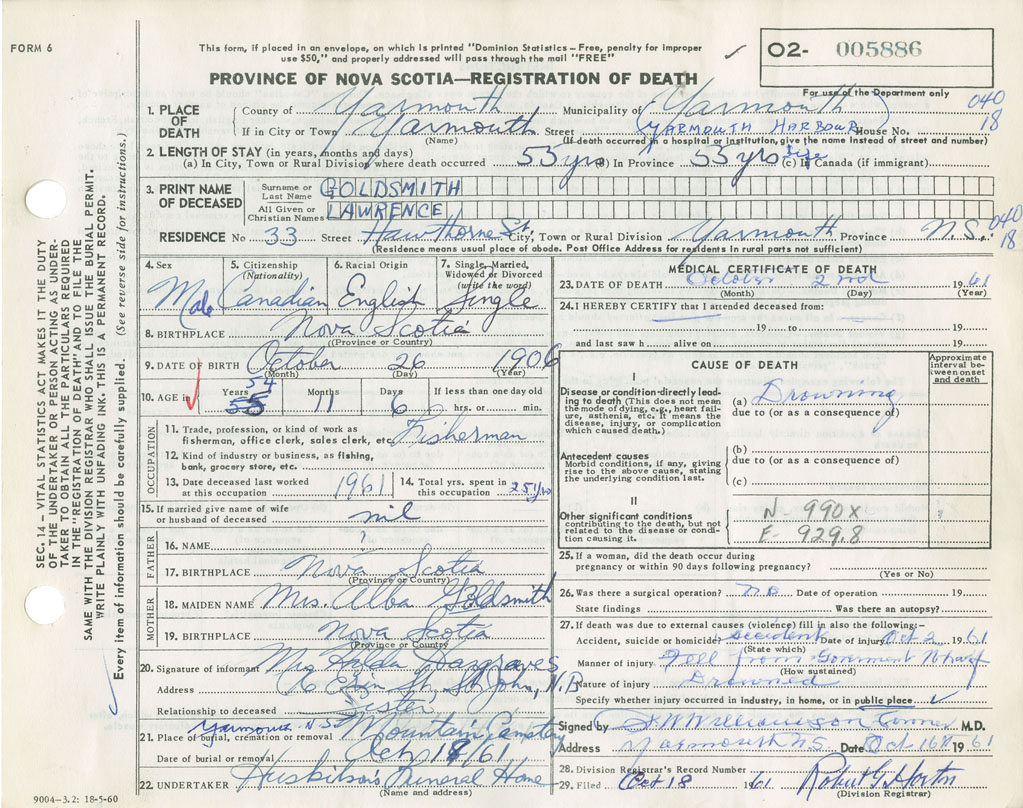 FORM 6
This form, if placed in an envelope, on which is printed "Dominion Statistics – Free, penalty for improper
use $50," and properly addressed will pass through the mail "FREE"
✓ O2- 005886
PROVINCE OF NOVA SCOTIA—REGISTRATION OF DEATH
For use of the Department only
040
18
1. PLACE OF DEATH
County of Yarmouth Municipality of (Yarmouth)
If in City or Town Yarmouth Street (YARMOUTH HARBOUR House No.
(Name) (If death occurred in a hospital or institution, give the name instead of street and number)
2. LENGTH OF STAY (in years, months and days)
(a) In City, Town or Rural Division where death occurred 53 yrs (b) In Province 53 yrs (c) In Canada (if immigrant) life
3. PRINT NAME OF DECEASED
Surname or Last Name GOLDSMITH
All Given or Christian Names LAWRENCE
RESIDENCE No 33 Street Hawthorne St. City, Town or Rural Division Yarmouth Province N.S.
040
18
(Residence means usual place of abode. Post Office Address for residents in rural parts not sufficient)
4. Sex 5. Citizenship (Nationality) 6. Racial Origin 7. Single, Married, Widowed or Divorced (write the word)
Male Canadian English Single
8. BIRTHPLACE Nova Scotia
(Province or Country)
9. DATE OF BIRTH October 26 1906
(Month) (Day) (Year)
10. AGE in ✓ Years 54 55 Months 11 Days 6 If less than one day old
hrs. or min.
OCCUPATION
11. Trade, profession, or kind of work as
fisherman, office clerk, sales clerk, etc. Fisherman
12. Kind of industry or business, as fishing,
bank, grocery store, etc.
13. Date deceased last worked
at this occupation 1961
14. Total yrs. spent in
this occupation 25 yrs
15. If married give name of wife
or husband of deceased nil
FATHER
16. NAME ?
17. BIRTHPLACE Nova Scotia
(Province or Country)
MOTHER
18. MAIDEN NAME Mrs. Alba Goldsmith
19. BIRTHPLACE Nova Scotia
(Province or Country)
20. Signature of informant Mrs Hargraves
Address St. St John, N.B
Relationship to deceased Sister
Yarmouth N.S.
21. Place of burial, cremation or removal Mountain Cemetery
Date of burial or removal Oct /61
22. UNDERTAKER Huskilson's Funeral Home
(Name and address)
MEDICAL CERTIFICATE OF DEATH
23. DATE OF DEATH October 2nd 1961
(Month) (Day) (Year)
24. I HEREBY CERTIFY that I attended deceased from:
19 to 19
and last saw h alive on 19
CAUSE OF DEATH
Approximate interval between onset and death
I
Disease or condition directly leading
to death (This does not mean
the mode of dying, e.g., heart failure,
asthenia, etc. It means the
disease, injury, or complication
which caused death.)
(a) Drowning
due to (or as a consequence of)
Antecedent causes
Morbid conditions, if any, giving
rise to the above cause, stating
the underlying condition last.
(b)
due to (or as a consequence of)
(c)
II
Other significant conditions
contributing to the death, but not
related to the disease or condition
causing it.
N- 990X
E- 929.8
25. If a woman, did the death occur during
pregnancy or within 90 days following pregnancy?
(Yes or No)
26. Was there a surgical operation? no Date of operation 19
State findings Was there an autopsy?
27. If death was due to external causes (violence) fill in also the following:–
Accident, suicide or homicide? accident Date of injury Oct 2 1961
(State which)
Manner of injury Fell from Government Wharf
(How sustained)
Nature of injury Drowned
Specify whether injury occurred in industry, in home, or in public place. ✓
Signed by Williamson Coroner M.D.
Address Yarmouth N.S. Date Oct 16th 1961
28. Division Registrar's Record Number
29. Filed Oct 18 1961 Robert G. Horton
(Division Registrar)
SEC. 14 – VITAL STATISTICS ACT MAKES IT THE DUTY
OF THE UNDERTAKER OR PERSON ACTING AS UNDERTAKER
TO OBTAIN ALL THE PARTICULARS REQUIRED
IN THE "REGISTRATION OF DEATH" AND TO FILE THE
SAME WITH THE DIVISION REGISTRAR WHO SHALL ISSUE THE BURIAL PERMIT.
WRITE PLAINLY WITH UNFADING INK. THIS IS A PERMANENT RECORD.
Every item of information should be carefully supplied. (See reverse side for instructions.)
9004-3.2: 18-5-60